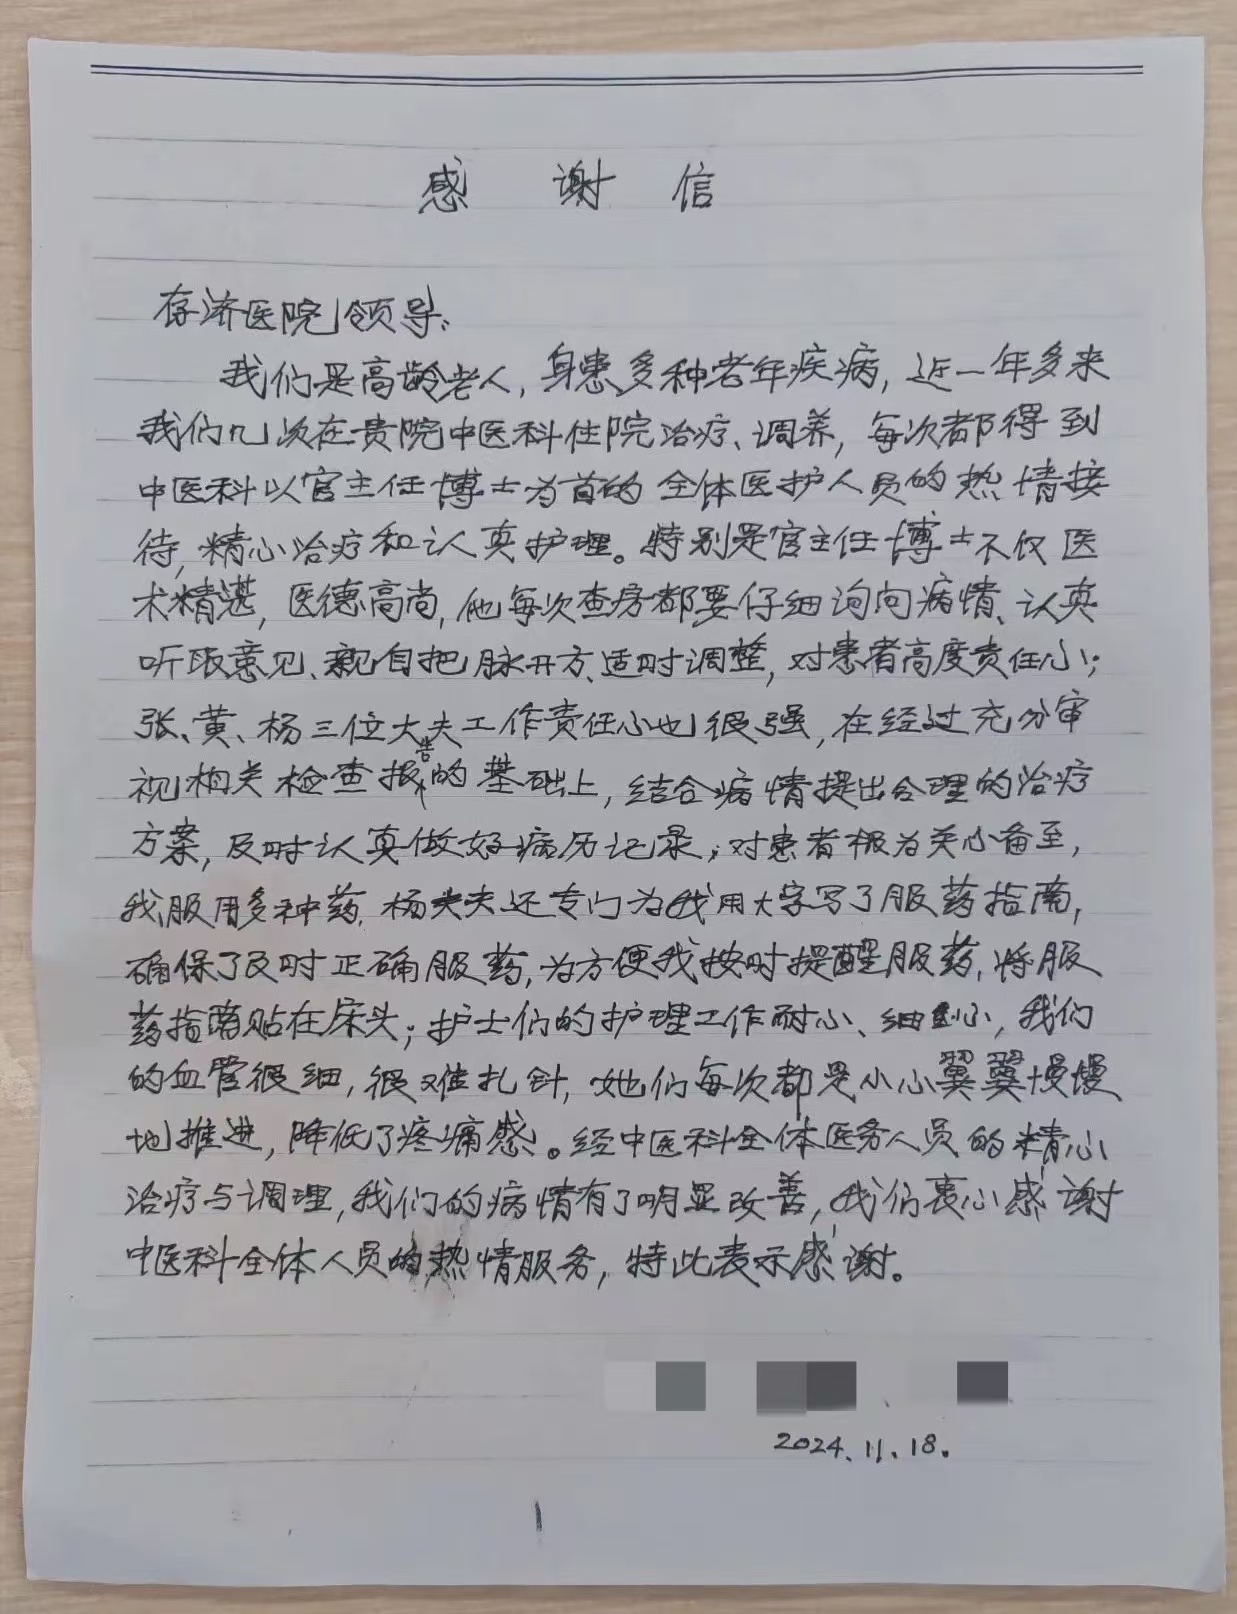 感谢信
存济医院领导、
我们是高龄老人，身患多种老年疾病，近一年多来
我们几次在贵院中医科住院治疗、调养，每次都得到
中医科以官主任博士为首的全体医护人员的热情接
待，精心治疗和认真护理。特别是官主任博士不仅医
术精湛，医德高尚，他每次查房都要仔细询问病情、认真
听取意见、亲自把脉开方、适时调整，对患者高度责任心；
张、黄、杨三位大夫工作责任心也很强，在经过充分审
视相关检查报告的基础上，结合病情提出合理的治疗
方案，及时认真做好病历记录；对患者极为关心备至，
我服用多种药，杨大夫还专门为我用大字写了服药指南，
确保了及时正确服药，为方便我按时提醒服药，将服
药指南贴在床头；护士们的护理工作耐心、细心，我们
的血管很细，很难扎针，她们每次都是小心翼翼慢慢
地推进，降低了疼痛感。经中医科全体医务人员的精心
治疗与调理，我们的病情有了明显改善，我们衷心感谢
中医科全体人员的热情服务，特此表示感谢。
2024.11.18.